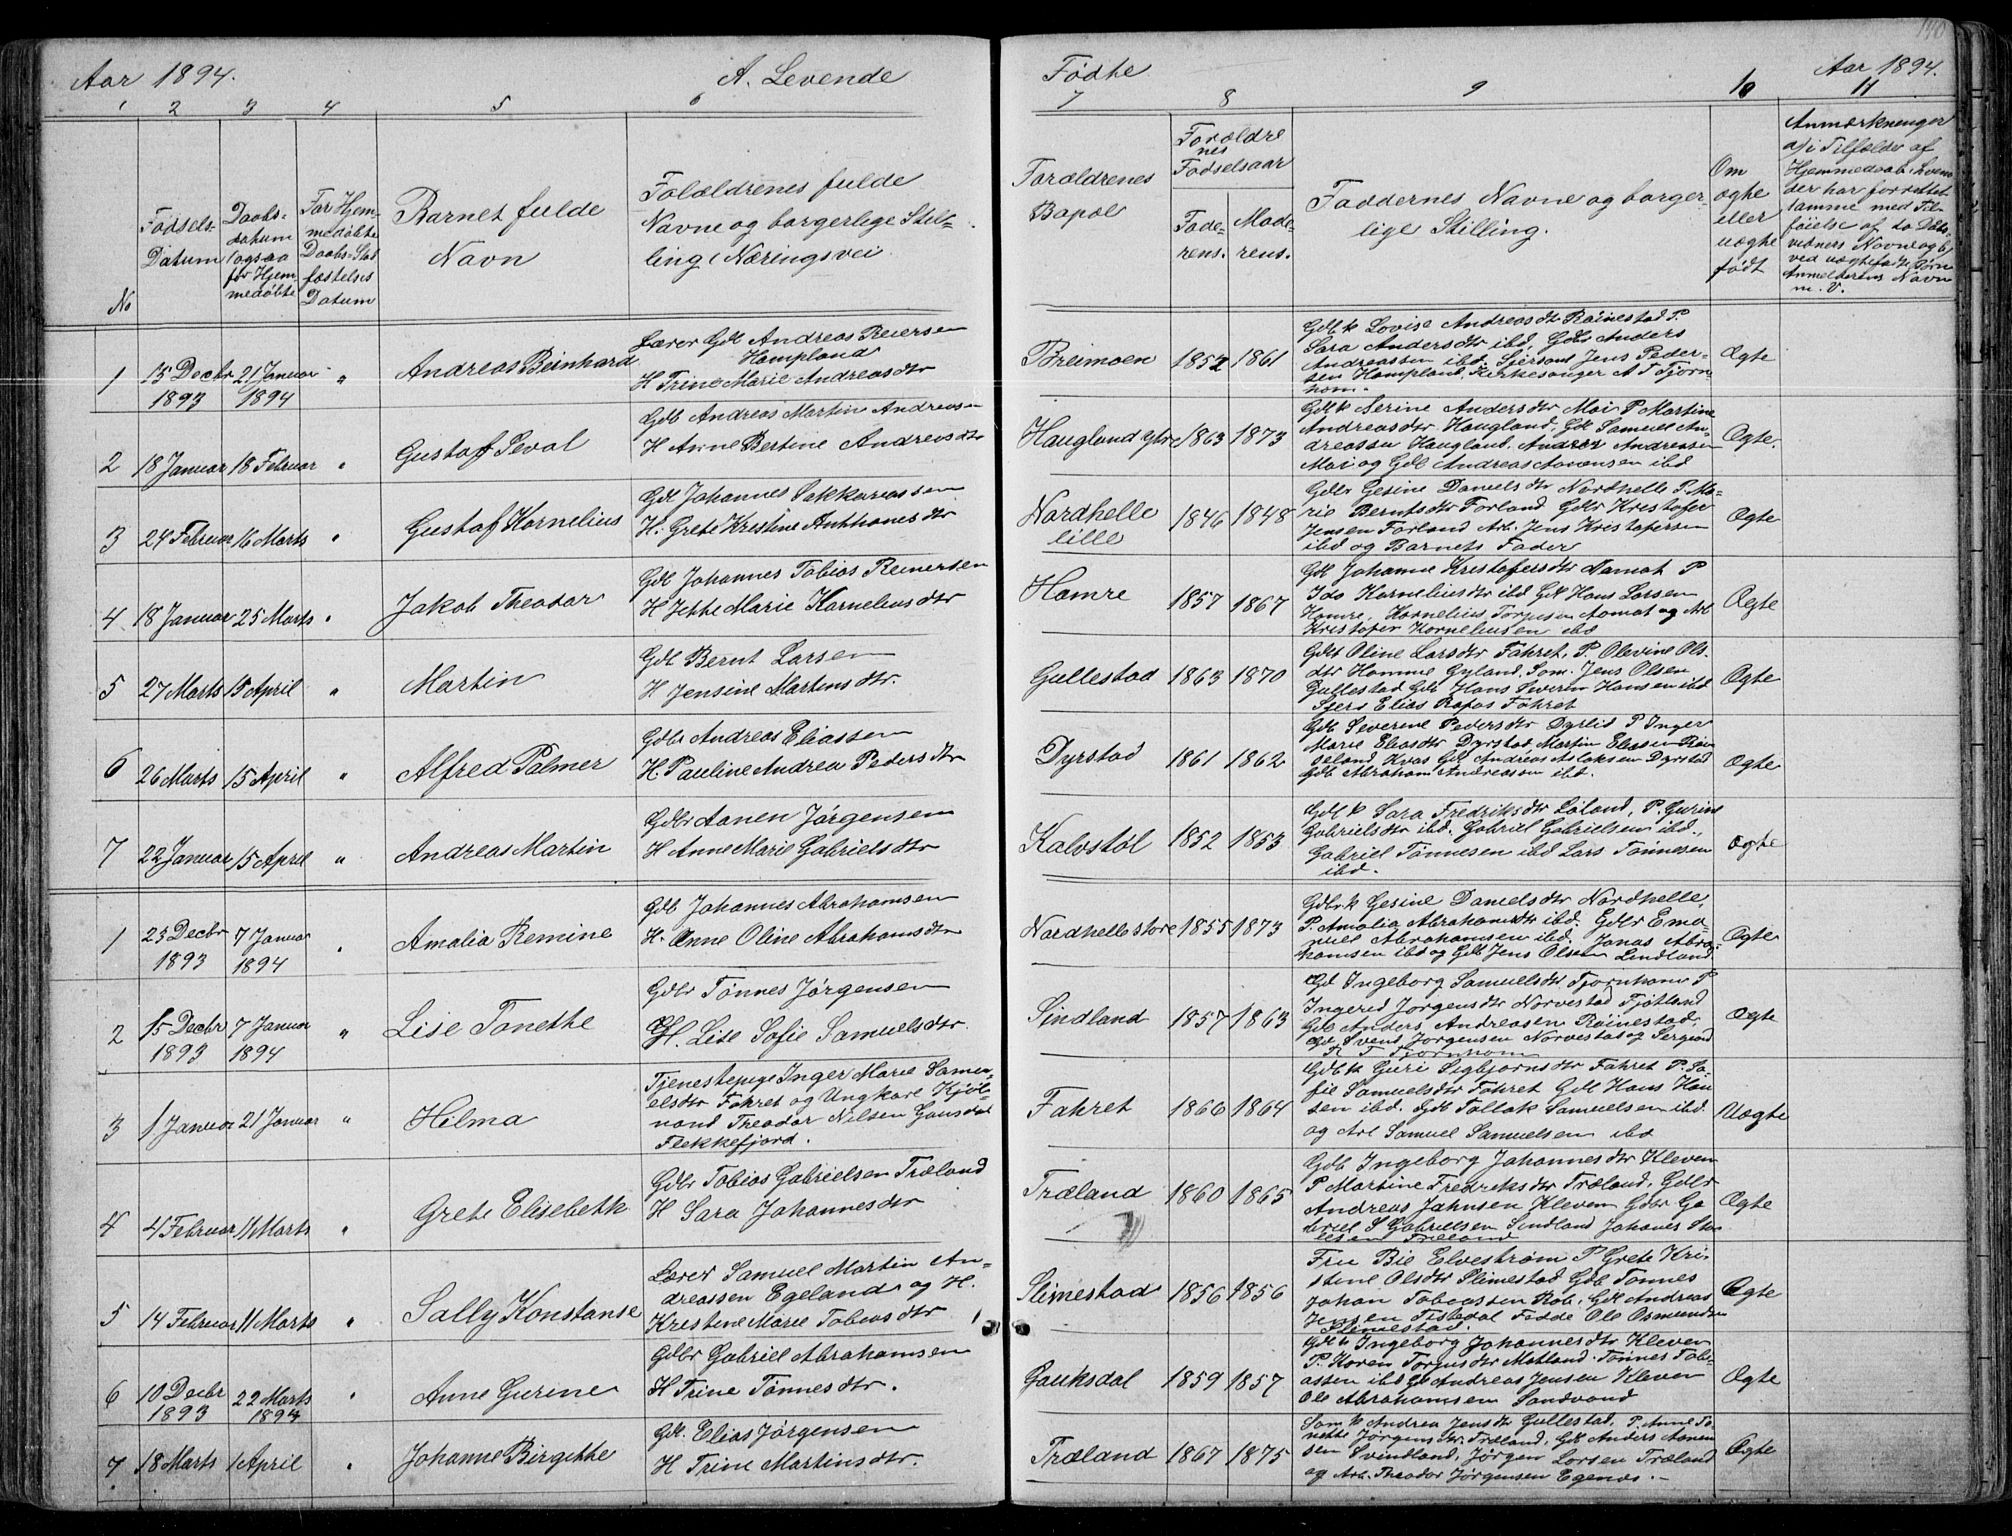 140
Aar 1894.
A. Levende
Fødte
Aar 1894.
1 2 3 4 5 6 7 8 9 10 11
No
Fødsels-
Datum
Daabs-
datum
(ogsaa
for Hjem
medøbte
For Hjem-
medøbte
Daabs-Stad
fæstelses
Datum
Barnet fulde
Navn
Folældrenes fulde
Navne og borgerlige Stil-
ling (Næringsvei
Forældrenes
Bopæl
Forældre
nes
Fødselsaar
Fade-
rens.
Mode-
rens.
Faddernes Navne og borger
lige Stilling.
Om
ægte
eller
uægte
født
Anmærkninger
a/ i Tilfælde af
Hjemmedaab, hvem
der har forrettet
samme med Til-
føielse af to Daabs-
vidners Navne og b/
ved uægtefødte Børn
Anmelderens Navn
m. V.
1
15 Decbr
1893
21 Januar
1894
"
Andreas Bernhard
Lærer Gdl Andreas Reiersen
Hompland
H Trine Marie Andreasdtr
Breimoen
1852
1861
Gdb k Lovise Andreasdtr Røinestad P.
Sara Andersdtr ibd, Gdbr Anders
Andreassen ibd. Sjersant Jens Peder-
sen Hompland, Kirkesanger A T Tjørn-
hom.
Ægte
2
18 Januar
18 Februar
"
Gustaf Peval
Gdb Andreas Martin Andreasen
H Anne Bertine Andreasdtr
Haugland ytre
1863
1873
Gdb k Serine Andersdtr Moi P Martine
Andreasdtr Haugland, Gdb Samuel An-
dreassen Haugland, Andreas Andreasen
Moi og Gdb Andreas Aanensen ibd
Ægte.
3
24 Februar
16 Marts
"
Gustaf Kornelius
Gdb Johannes Sakkariassen
H. Grete Kristine Anthhonesdtr
Nordhelle
lille
1846
1848
Gdbr Gesine Danielsdtr Nordhelle P. Ma-
rie Berntsdtr Forland Gdbr Kristofer
Jensen Forland Arb. Jens Kristofersen
ibd og Barnets Fader
Ægte
4
18 Januar
25 Marts
"
Jakob Theodor
Gdb Johannes Tobias Reinersen
H Jette Marie Korneliusdtr
Homre
1857
1867
Gdb Johanne Kristofersdtr Aamot P
Ida Korneliusdtr ibd Gdb Hans Larsen
Homre, Kornelius Torjusen Aamot og Arb
Kristofer Korneliusen ibd
Ægte
5
27 Marts
15 April
"
Martin
Gdb Bernt Larsen
H Jensine Martinsdtr.
Gullestad
1863
1870
Gdb Oline Larsdtr Fahret, P. Olevine Ols-
dtr Homme Gyland, Som. Jens Olsen
Gullestad Gdb Hans Severin Hansen ibd
Sjers Elias Rafos Fahret
Ægte
6
26 Marts
15 April
"
Alfred Palmer
Gdbr Andreas Eliassen
H. Pauline Andrea Pedersdtr
Dyrstad
1861
1862
Gdb Severine Pedersdtr Dyrlid P Inger
Marie Eliasdtr Dyrstad, Martin Eliasen Røi
seland Kvas Gdb Andreas Aslaksen Dyrstad
Gdb Abraham Andreassen ibd.
Ægte
7
22 Januar
15 April
"
Andreas Martin
Gdbr Aanen Jørgensen
H Anne Marie Gabrielsdtr
Kalvstøl
1852
1853
Gdb k Sara Fredriksdtr Løland, P. Gurine
Gabrielsdtr ibd. Gabriel Gabrielsen ibd.,
Gabriel Tønnesen ibd Lars Tønnesen
ibd.
Ægte
1
23 Decbr
1893
7 Januar
1894
"
Amalia Remine
Gdb Johannes Abrahamsen
H. Anne Oline Abrahamsdtr
Nordhelle store
1855
1873
Gdbr k Gesine Danielsdtr Nordhelle,
P. Amalia Abrahamsdtr ibd. Gdbr Ema-
nuel Abrahamsen ibd. Jonas Abra-
hamsen ibd og Gdb Jens Olsen Lindland
Ægte
2
15 Decbr
1893
7 Januar
1894
"
Lise Tonethe
Gdbr Tønnes Jørgensen
H. Lise Sofie Samuelsdtr
Sindland
1857
1863
Gd Ingeborg Samuelsdtr Tjørnhom P
Ingered Jørgensdtr Norvestad Fjotland
Gdb Anders Andreasen Røinestad,
Gd Svend Jørgensen Norvestad og Sergeand
R T Tjørnhom
Ægte
3
1 Januar
21 Januar
"
Hilma
Tjenestepige Inger Marie Samu-
elsdtr Fahret og Ungkarl Kjøl-
vand Theodor Nilsen Gausdal
Flekkefjord.
Fahret
1866
1864
Gdb k Guri Sigbjørnsdtr Fahret P. So-
fie Samuelsdtr Fahret Gdb Hans Han
sen ibd. Gdb Tollak Samuelsen ibd
og Arb Samuel Samuelsen ibd
Uægte
4
4 Februar
11 Marts
"
Grete Elisebeth
Gdbr Tobias Gabrielsen Træland
H Sara Johannesdtr
Træland
1860
1865
Gdb Ingeborg Johannesdtr Kleven
P Martine Fredriksdtr Træland, Gdbr
Andreas Jahnsen Kleven Gdbr Ga
briel S Gabrielsen Sindland Johanes
Træland
Ægte
5
14 Februar
11 Marts
"
Sally Konstanse
Lærer Samuel Martin An-
dreassen Egeland og H.
Kristine Marie Tobiasdtr
Slimestad
1856
1856
Fru Bie Elvestrøm P Grete Kri-
stine Olsdtr Slimestad Gdb Tønnes
Johan Tobiassen Rob, Gdb Andreas
Jensen Tisledal Fedde Ole Osmundsen
Slimestad.
Ægte
6
10 Decbr
1893
22 Marts
1894
"
Anne Gurine
Gdbr Gabriel Abrahamsen
H Trine Tønnesdtr.
Gauksdal
1859
1857
Gdb k Ingeborg Johannesdtr Kleven
P. Karen Torjusdtr Møtland. Tønnes Tobi-
assen ibd Gb Andreas Jensen Kleven
Ole Abrahamsen Sandvand
Ægte
7
18 Marts
1 April
"
Johanne Birgitthe
Gdb. Elias Jørgensen
H Trine Martinsdtr.
Træland
1867
1875
Som k Andrea Jensdtr Gullestad, P. Anne To-
nette Jørgensdtr. Træland, Gdb Anders Aanen
sen Svindland, Jørgen Larsen Træland
og Arb. Theodor Jørgensen Egenes.
Ægte